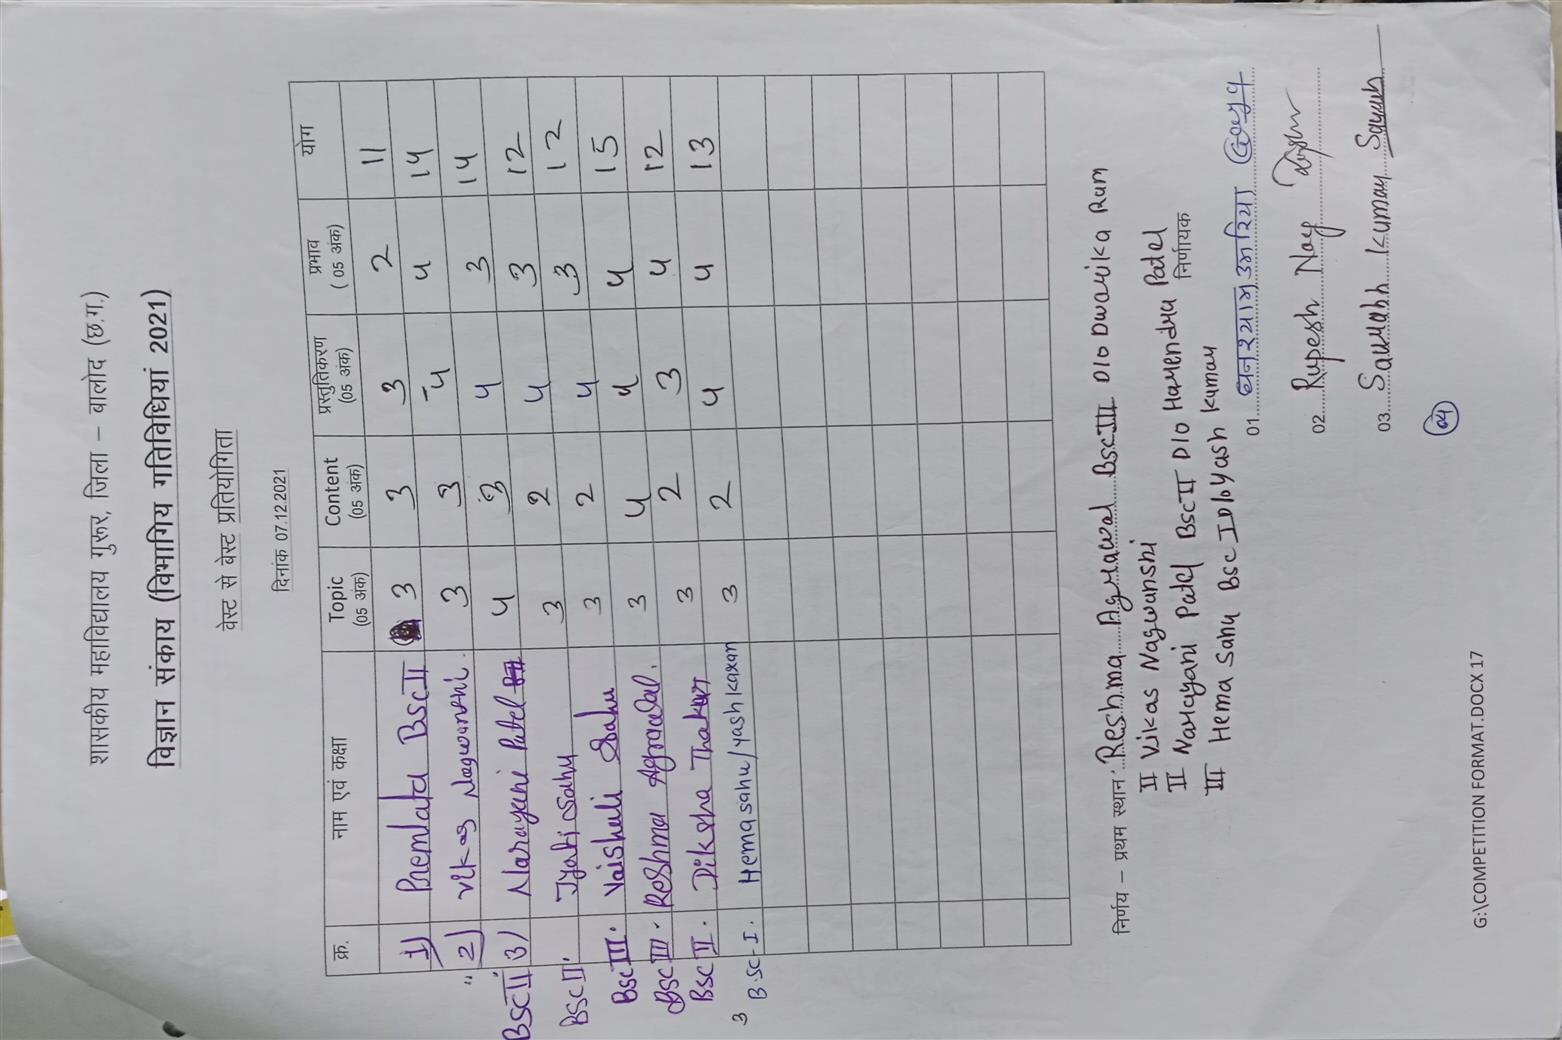 शासकीय महाविद्यालय गुरूर, जिला – बालोद (छ.ग.)
विज्ञान संकाय (विभागिय गतिविधियां 2021)
वेस्ट से बेस्ट प्रतियोगिता
दिनांक 07.12.2021
क्र. नाम एवं कक्षा Topic (05 अंक) Content (05 अंक) प्रस्तुतिकरण (05 अंक) प्रभाव ( 05 अंक) योग
1) Premlata BSC II 3 3 3 2 11
" 2) Vikas Nagwanshi. 3 3 4 4 14
BSC II 3) Narayani Patel 4 3 4 3 14
BSC II' Jyoti Sahu 3 2 4 3 12
BSC III. Vaishali Sahu 3 2 4 3 12
BSC III. Reshma Agrawal. 3 4 4 4 15
BSC II. Diksha Thakur 3 2 3 4 12
3 B.SC-I. Hema sahu/yash karan 3 2 4 4 13
निर्णय – प्रथम स्थान Reshma Agrawal BSC III D/O Dwarika Ram
II Vikas Nagwanshi
II Narayani Patel BSC II D/O Hamendra Patel
III Hema Sahu BSC I D/O Yash Kumar
निर्णायक
01. घनश्याम
02. Rupesh Nag
03. Saurabh Kumar Saurabh
04
G:\COMPETITION FORMAT.DOCX 17